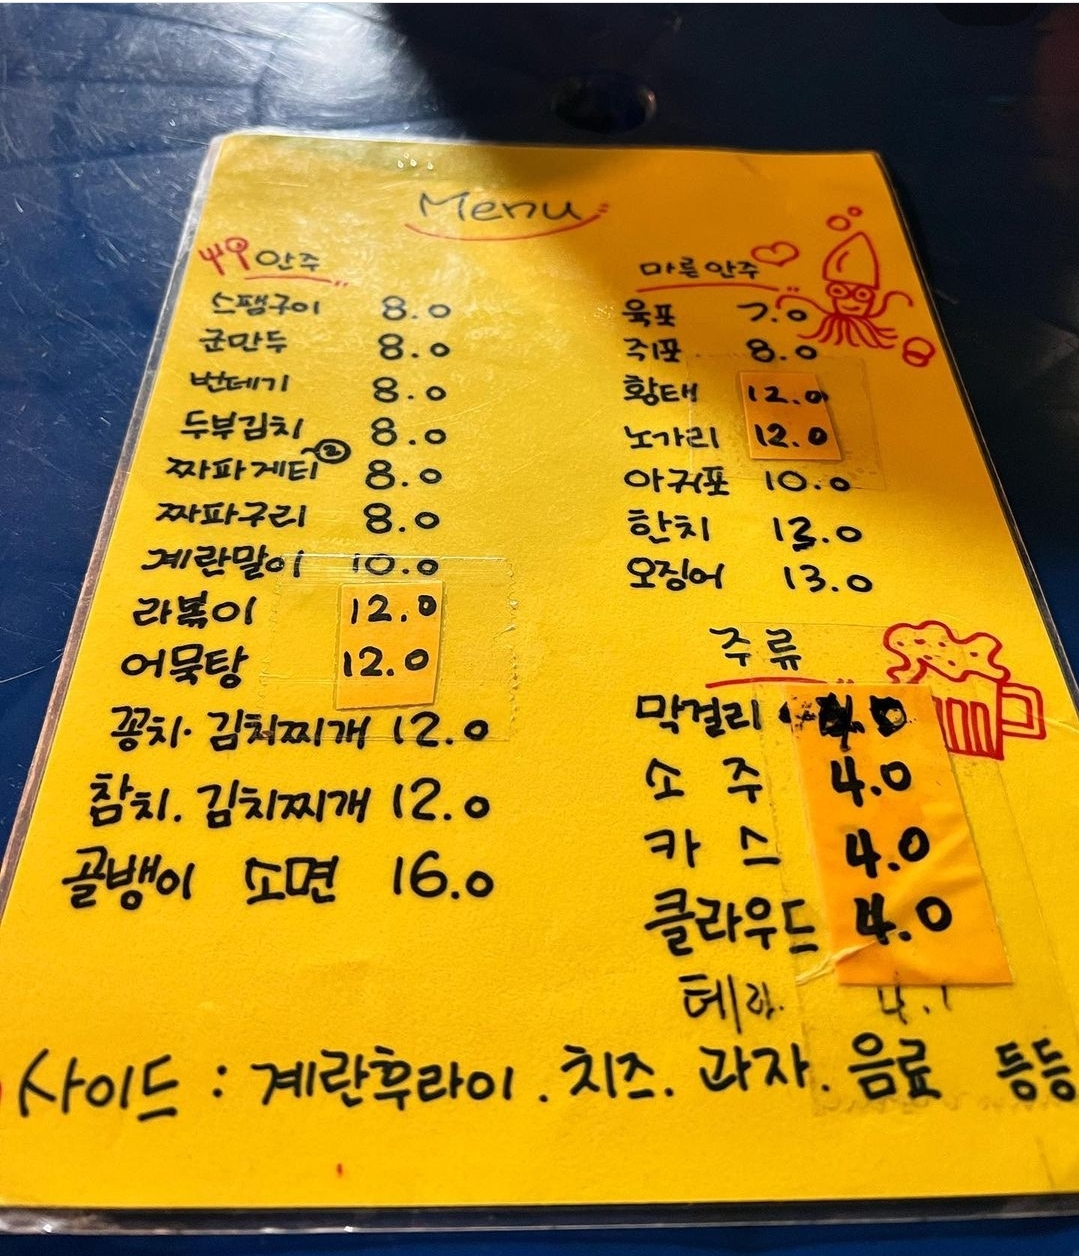 Menu
안주
스팸구이 8.0
군만두 8.0
번데기 8.0
두부김치 8.0
짜파게티 ② 8.0
짜파구리 8.0
계란말이 10.0
라볶이 12.0
어묵탕 12.0
꽁치·김치찌개 12.0
참치.김치찌개 12.0
골뱅이 소면 16.0
마른안주
육포 7.0
쥐포 8.0
황태 12.0
노가리 12.0
아귀포 10.0
한치 13.0
오징어 13.0
주류
막걸리 4.0
소주 4.0
카스 4.0
클라우드 4.0
테라
사이드 : 계란후라이 . 치즈. 과자. 음료 등등